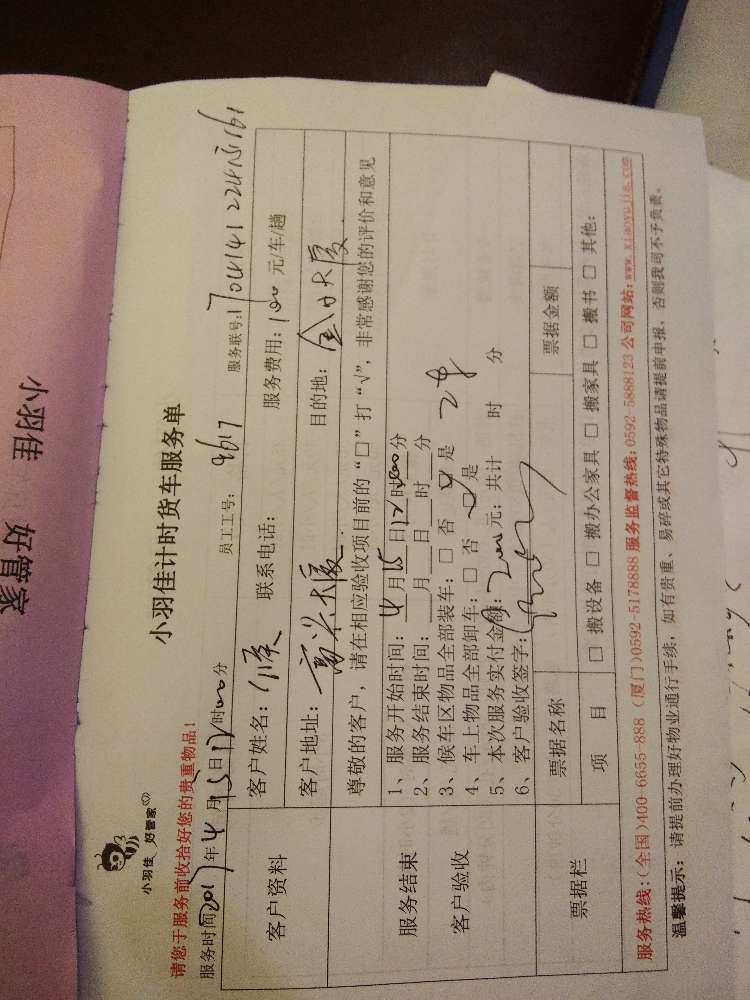 小羽佳
好管家
小羽佳 好管家
小羽佳计时货车服务单
请您于服务前收拾好您的贵重物品！
服务时间2017年4月15日12时00分 员工工号： 9617 服务联号：
客户资料
客户姓名： 联系电话： 服务费用：100元/车/趟
客户地址： 大厦 目的地： 大厦
服务结束
客户验收
尊敬的客户，请在相应验收项目前的“□”打“√”，非常感谢您的评价和意见
1、服务开始时间：4月15日12时00分
2、服务结束时间：__月__日__时__分
3、候车区物品全部装车：□ 否 ☑ 是
4、车上物品全部卸车：□ 否 ☑ 是
5、本次服务实付金额：200元；共计 时 分
6、客户验收签字：
票据栏
票据名称 票据金额
项 目 □ 搬设备 □ 搬办公家具 □ 搬家具 □ 搬书 □ 其他：
服务热线：(全国)400-6655-888 (厦门)0592-5178888 服务监督热线：0592-5888123 公司网站：www.xiaoyujia.com
温馨提示：请提前办理好物业通行手续，如有贵重、易碎或其它特殊物品请提前申报，否则我司不予负责。